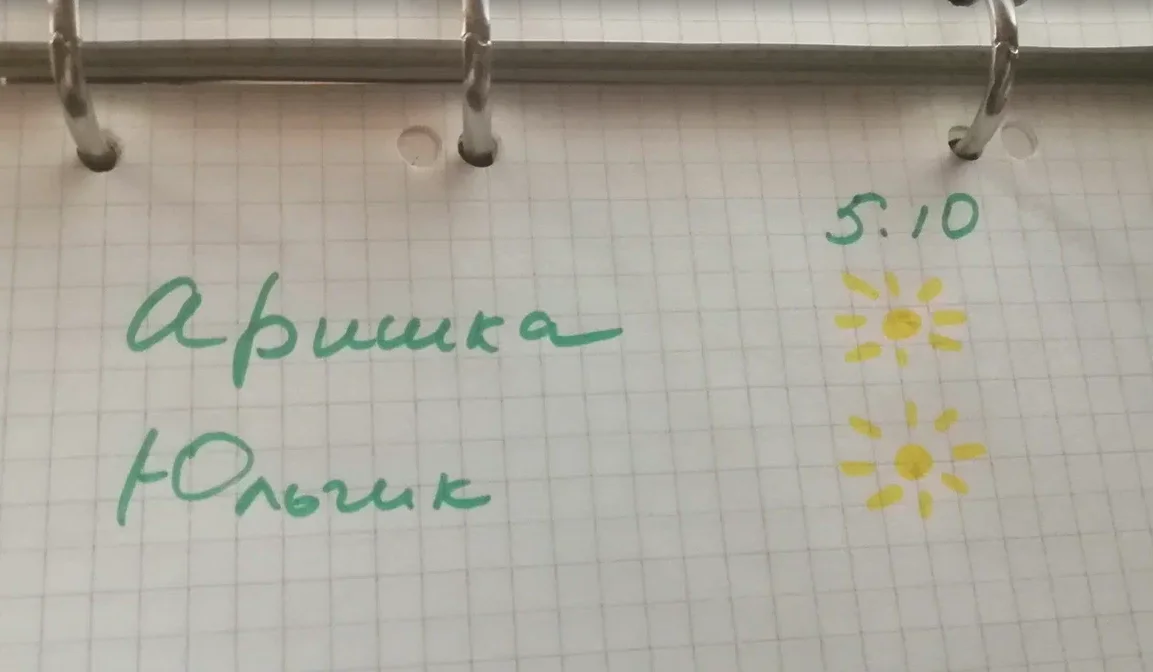 5.10
Аришка
Юльчик